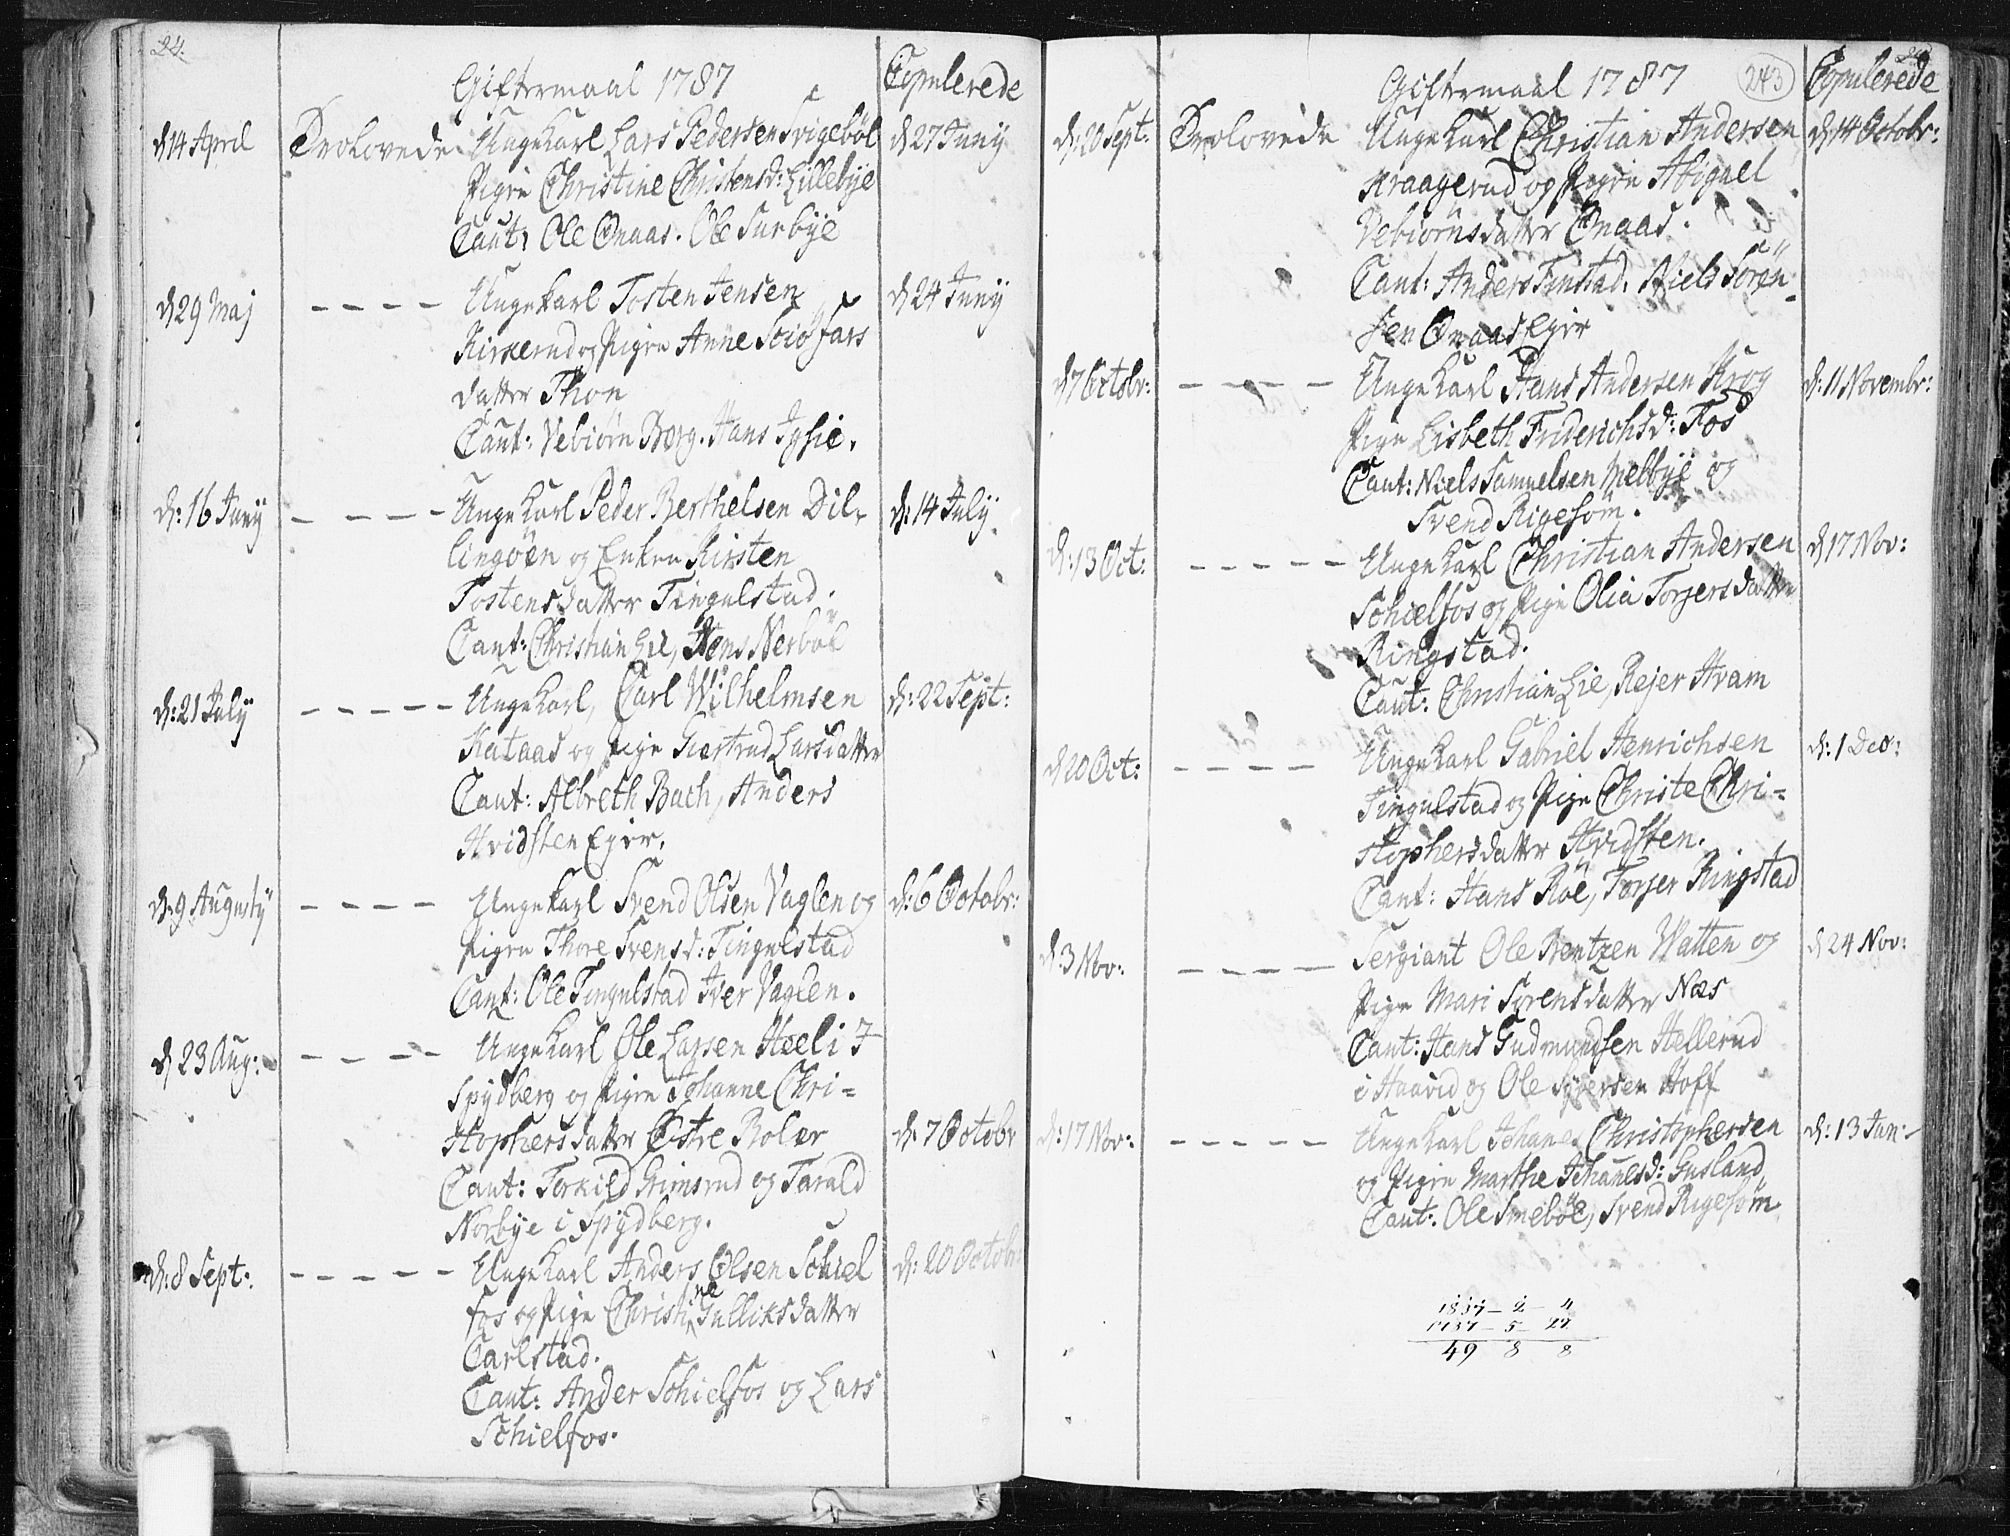 24.
Giftermaal 1787
Copulerede
d 14 April Trolovede Ungekarl Lars Pedersen Svigebøl d 27 Junÿ
Pigen Christine Christensd: Lillebÿe
Caut: Ole Onaas. Ole Surbÿe
d 29 Maj - - - - Ungekarl Tosten Jensen d 24 Junÿ
Kirkerud og Pigen Anne Scio fars
datter Thon
Caut: Vebiørn Borg. Hans Igsie.
d: 16 Junÿ - - - - Ungekarl Peder Berthelsen Dil- d: 14 Julÿ
lingøen og Enken Kirsten
Tostensdatter Tingulstad.
Caut: Christian Lie, Hans Nerbøl
d: 21 Julÿ - - - - - Ungekarl, Carl Wilhelmsen d: 22 Sept:
Kataas og Pige Giertrud Larsdatter
Caut: Albreth Bach, Anders
Hvidsten Eger.
d: 9 Augustÿ - - - - Ungekarl Svend Olsen Vaglen og d: 6 Octobr:
Pigen Thore Svensd: Tingulstad
Caut: Ole Tingulstad Iver Vaglen.
d 23 Aug: - - - - Ungekarl Ole Larsen Heeli I
Spÿdberg og Pigen Johanne Chri-
stophersdatter Østre Roler d: 7 Octobr
Caut: Torkild Grimsrud og Tarald
Norbÿe i Spÿdberg.
d: 8 Sept: - - - - - Ungekarl Anders Olsen Schiel d: 20 Octobr:
fos og Pige Christine Gulliksdatter
Carlstad.
Caut: Ander Schielfos og Lars
Schielfos.
243
Giftermaal 1787
Copulerede
d: 20 Sept: Trolovede Ungekarl Christian Andersen d: 14 Octobr:
Kraagerud og Pigen Abigael
Vebiørnsdatter Onaas.
Caut: Anders Finstad. Niels Søren-
sen Onaas Eger
d 7 Octobr: - - - - Ungekarl Hans Andersen Krog d: 11 Novembr:
Pige Lisbeth Friderichsd: Fos
Caut: Niels Samuelsen Melbÿe og
Svend Rigesøm.
d: 13 Oct: - - - - - Ungekarl Christian Andersen d 17 Nov:
Schielfos og Pige Olia Torgersdatter
Ringstad.
Caut: Christian Lie, Rejer Hvam
d 20 Oct: - - - - Ungekarl Gabriel Henrichsen d: 1 Dec:
Tingulstad og Pige Christe Chri-
stophersdatter Hvidsten.
Caut: Hans Røe, Torger Ringstad
d: 3 Nov: - - - - Sergiant Ole Brentzen Watten og d 24 Nov:
Pige Mari Sørensdatter Næs
Caut: Hans Gudmundsen Hellerud
i Haavid og Ole Sÿversen Hoff
d: 17 Nov: - - - - - Ungekarl Johanes Christophersen d: 13 Jan:
og Pigen Marthe Johanesd: Gusland
Caut: Ole Smebøl, Svend Rigesøm
1837 - 2 - 4
1787 - 5 - 27
49 8 8